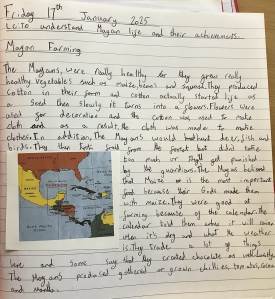 Friday 17th January 2025
L.c: to understand Mayan life and their achievements.
Mayan Farming
The Mayans were really healthy for they grew really
healthy vegetables such as maize, beans and squash. They produced
cotton in their farm and cotton actually started life as
a seed then slowly it turns into a flowers. Flowers were
used for decoration and the cotton was used to make
cloth and as a result, the cloth was made to make
clothes. In addison, The Mayans would hunt deer, fish and
birds. They then took food from the forest but didn't take
too much or they'll get punished
by the guardians. The Mayans believed
that Maize is the most important
food because their Gods made them
with maize. They were good at
farming because of the calendar. The
calendar told them when it will come
when it's dry and what the weather
is. They trade a lot of things
here and some say that they created chocolate as well. Lastly,
The Mayans produced gathered or grown chillies, tomatoes, Goten
and